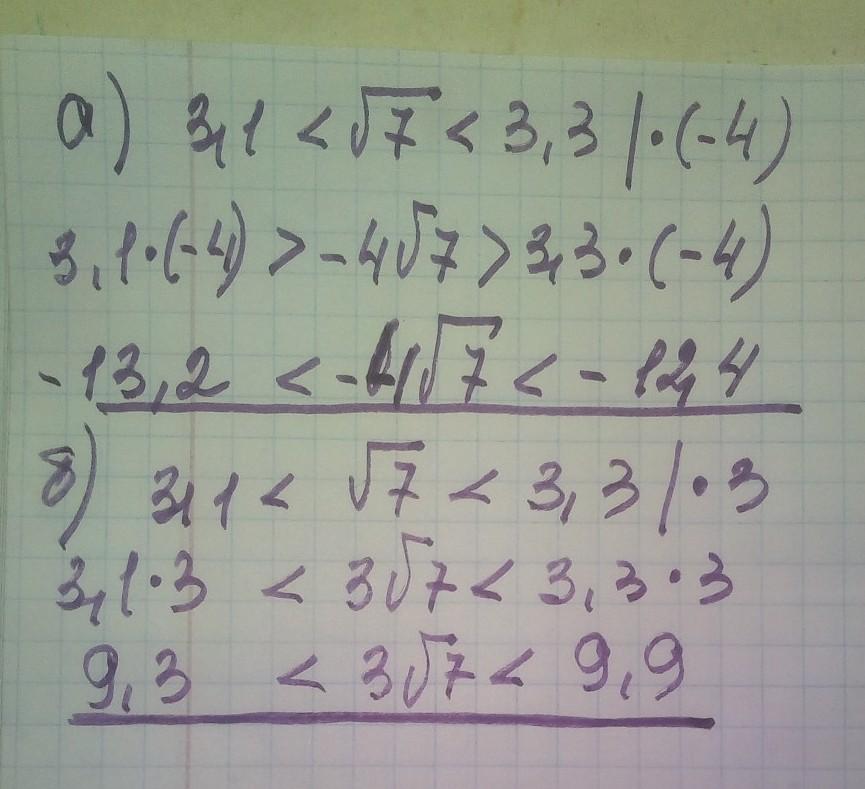 а) 3,1 < √7 < 3,3 | · (-4)
3,1·(-4) > -4√7 > 3,3·(-4)
-13,2 < -4√7 < -12,4
б) 3,1 < √7 < 3,3 | · 3
3,1·3 < 3√7 < 3,3·3
9,3 < 3√7 < 9,9